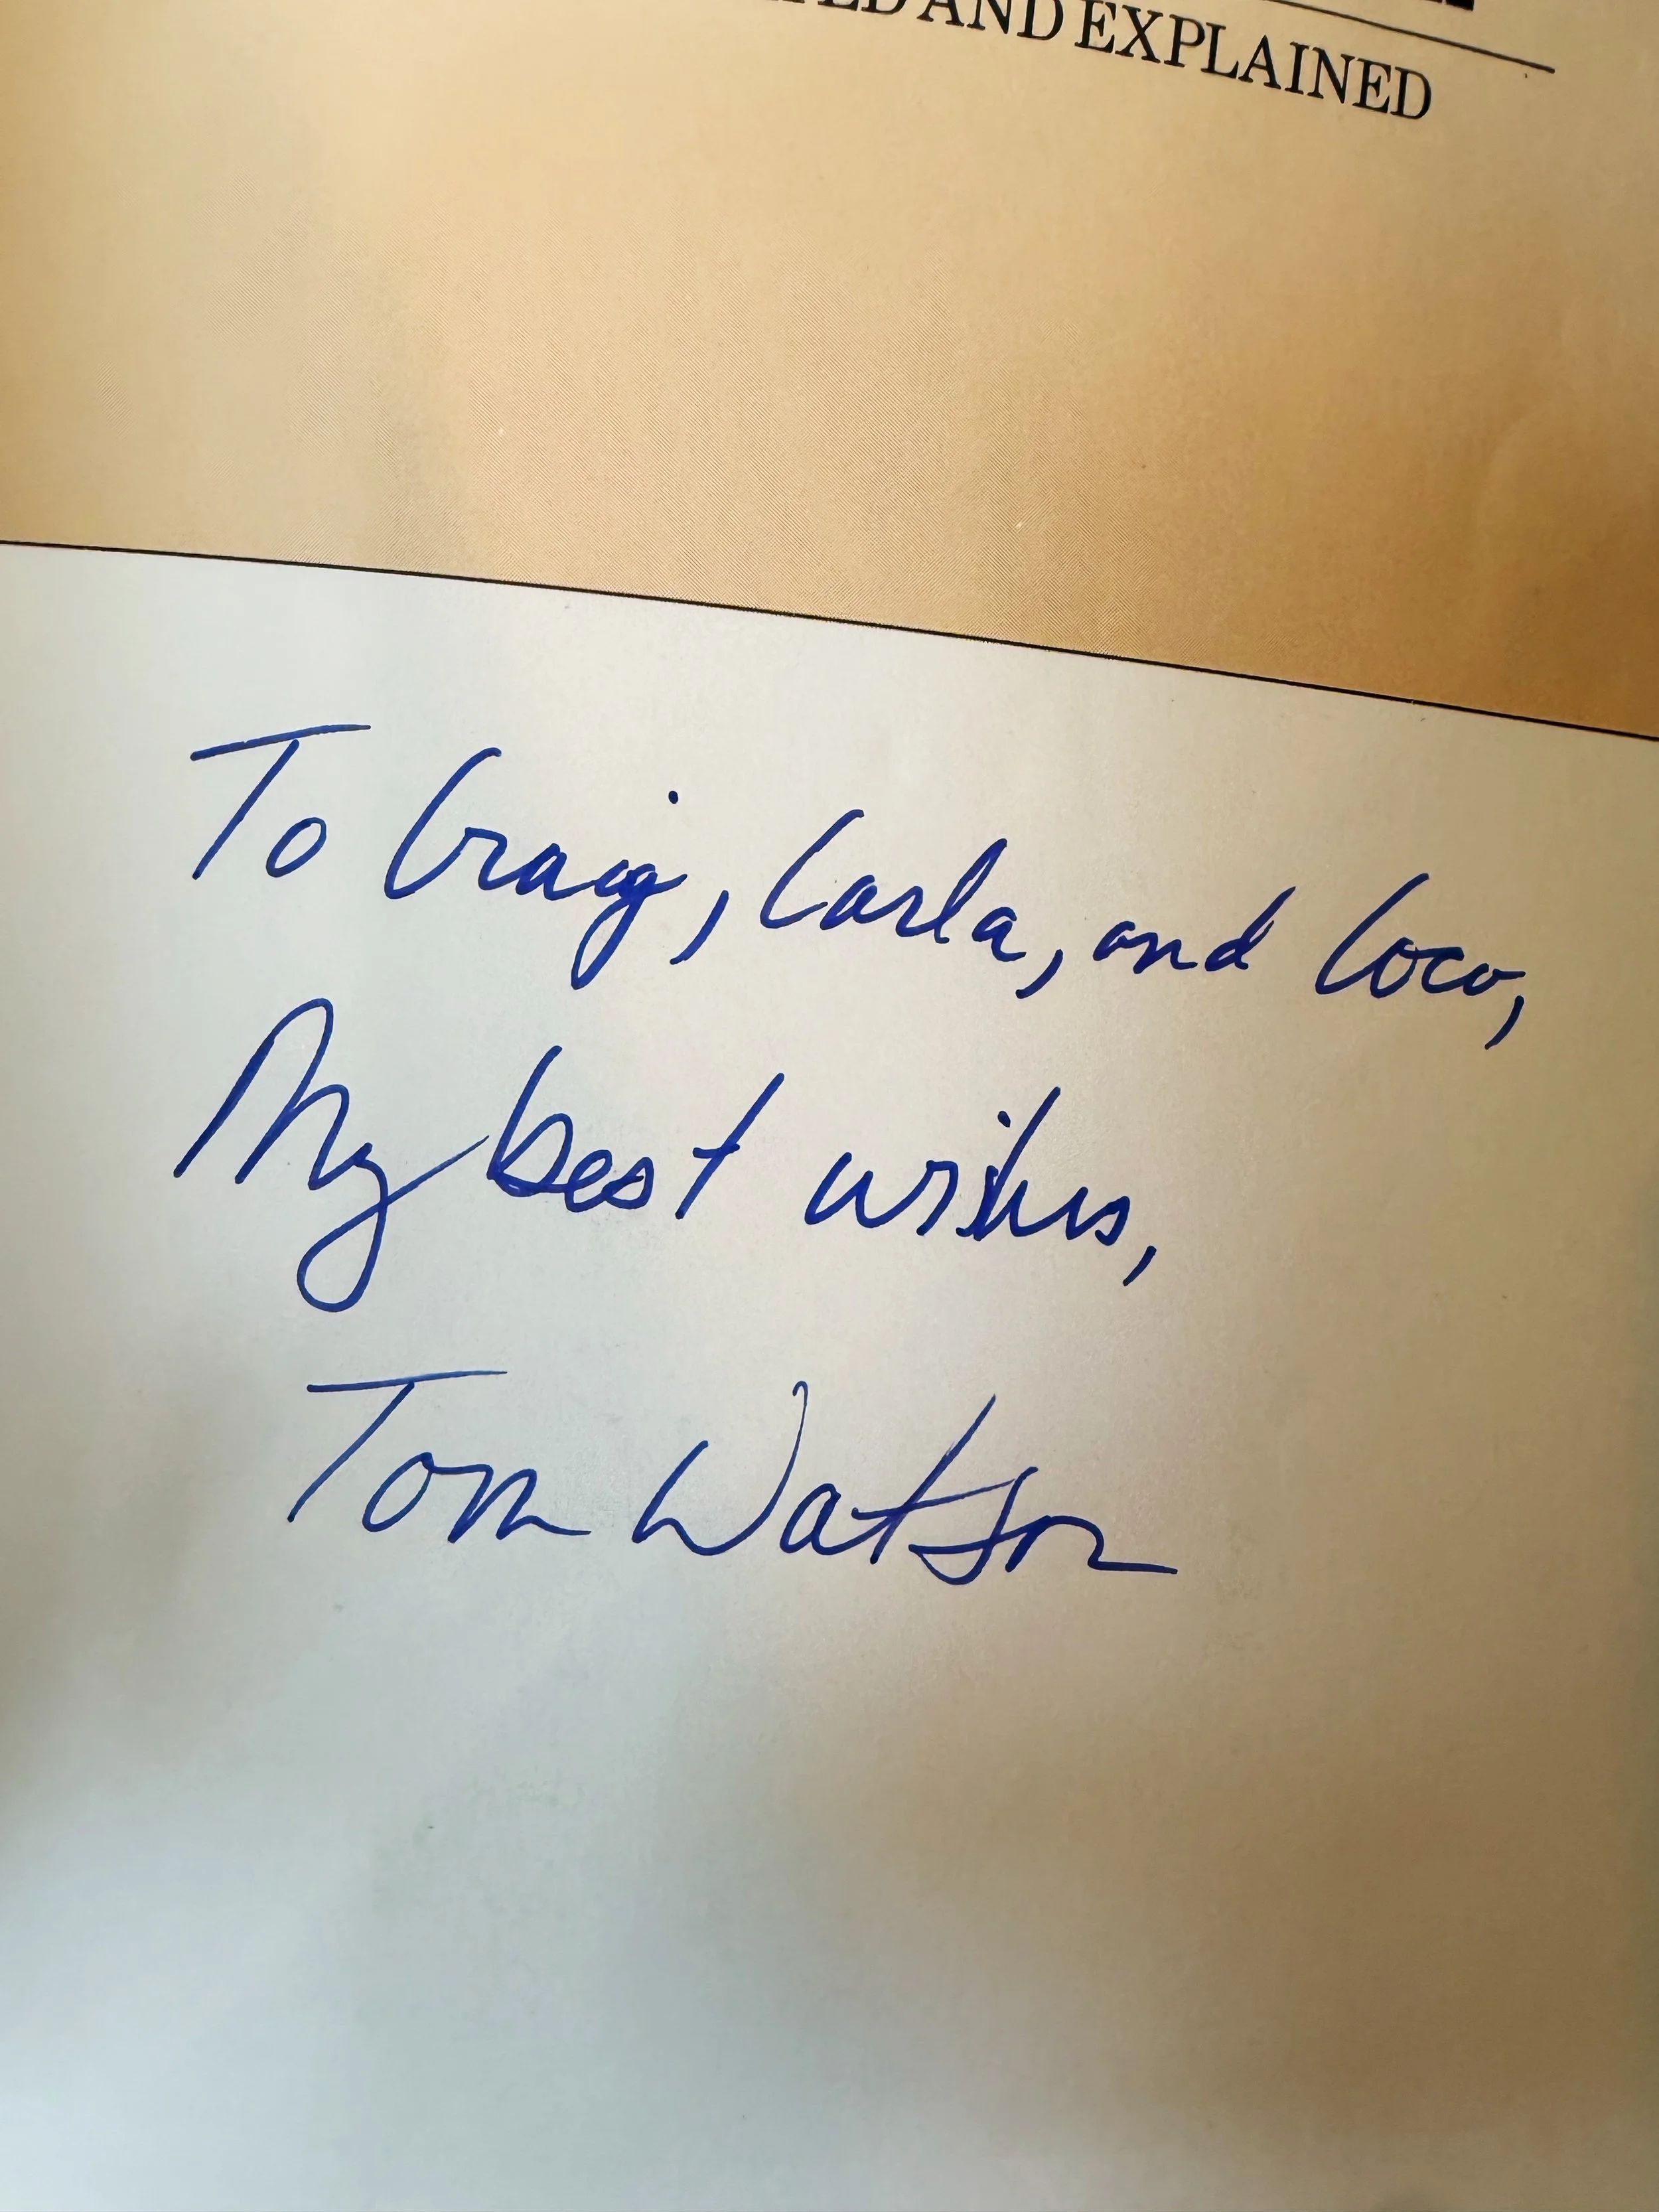 AND EXPLAINED
To Craig, Carla, and Coco,
My best wishes,
Tom Watson